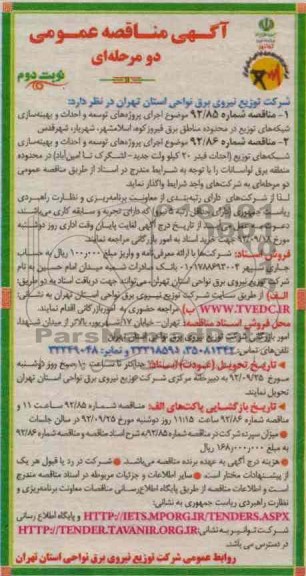 آگهی مناقصه عمومی
دو مرحله‌ای
نوبت دوم
شرکت توزیع نیروی برق نواحی استان تهران در نظر دارد:
۱- مناقصه شماره ۹۲/۸۵ موضوع اجرای پروژه‌های توسعه و احداث و بهینه‌سازی
شبکه‌های توزیع در محدوده مناطق برق فیروزکوه، اسلامشهر، شهریار، شهرقدس
۲- مناقصه شماره ۹۲/۸۶ موضوع اجرای پروژه‌های توسعه و احداث و بهینه‌سازی
شبکه‌های توزیع (احداث فیدر ۲۰ کیلو ولت جدید - لشگرک تا امین‌آباد) در محدوده
منطقه برق لواسانات را با توجه به شرایط مندرج در اسناد از طریق مناقصه عمومی
دو مرحله‌ای به شرکت‌های واجد شرایط واگذار نماید.
لذا از شرکت‌های دارای رتبه‌بندی از معاونت برنامه‌ریزی و نظارت راهبردی
ریاست جمهوری که دارای تجربه و سابقه کاری می‌باشند،
از تاریخ درج آگهی لغایت پایان وقت اداری روز دوشنبه
جهت خرید اسناد به امور بازرگانی مراجعه نمایند.
فروش اسناد: شرکت‌ها با ارائه معرفی‌نامه و واریز مبلغ ۱۰۰,۰۰۰ ریال به حساب
جاری سپهر بانک صادرات شعبه میدان امام حسین به نام
شرکت توزیع نیروی برق نواحی استان تهران، می‌توانند جهت دریافت اسناد به دو طریق:
الف) از طریق سایت شرکت توزیع نیروی برق نواحی استان تهران به نشانی:
WWW.TVEDC.IR ب) مراجعه حضوری به امور بازرگانی اقدام نمایند.
محل فروش اسناد مناقصه: تهران- خیابان ۱۷ شهریور، بالاتر از میدان شهدا،
امور بازرگانی شرکت توزیع نیروی برق نواحی استان تهران
تلفن‌های تماس: ۳۵۰۸۱۳۴۲، ۳۳۳۴۸۵۹۱ و نمابر: ۳۳۳۴۹۰۴۸
تاریخ تحویل (عودت) اسناد: حداکثر تا ساعت ۱۰ صبح روز دوشنبه
مورخ ۹۲/۰۹/۲۵ به دبیرخانه مرکزی شرکت توزیع نیروی برق نواحی استان تهران
تحویل نمایند.
تاریخ بازگشایی پاکت‌های الف: مناقصه شماره ۹۲/۸۵ ساعت ۱۱ و
مناقصه شماره ۹۲/۸۶ ساعت ۱۱:۱۵ روز دوشنبه مورخ ۹۲/۰۹/۲۵ در سالن جلسات
میزان سپرده شرکت در مناقصه شماره ۹۲/۸۵ به شرح اسناد مناقصه و مناقصه شماره ۹۲/۸۶
به مبلغ ۱۶۸,۰۰۰,۰۰۰ ریال
هزینه درج آگهی به عهده برنده مناقصه می‌باشد. شرکت در رد یا قبول هر یک
از پیشنهادات مختار است. سایر اطلاعات و جزئیات مربوطه در اسناد مناقصه مندرج
است و اطلاعات مناقصه از طریق پایگاه اطلاع‌رسانی مناقصات معاونت برنامه‌ریزی و
نظارت راهبردی ریاست جمهوری به نشانی:
HTTP://IETS.MPORG.IR/TENDERS.ASPX و پایگاه اطلاع رسانی
شرکت توانیر به نشانی: HTTP://TENDER.TAVANIR.ORG.IR
در دسترس می باشد.
روابط عمومی شرکت توزیع نیروی برق نواحی استان تهران